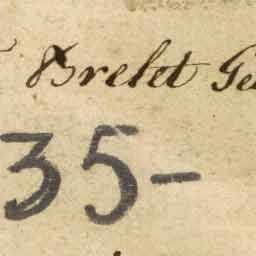 Brelet Ge
35-